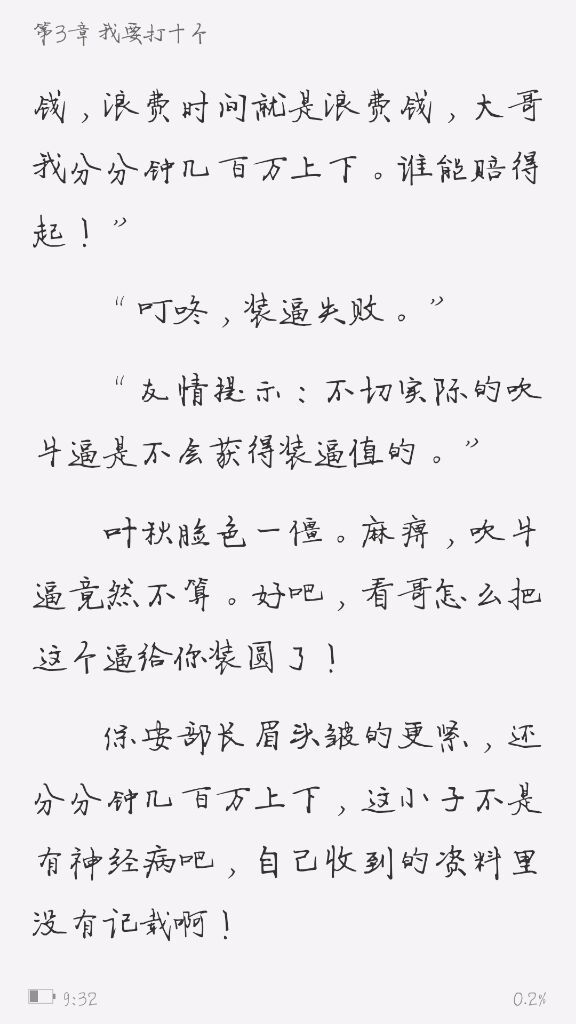 第3章 我要打十个
钱，浪费时间就是浪费钱，大哥
我分分钟几百万上下。谁能赔得
起！”
“叮咚，装逼失败。”
“友情提示：不切实际的吹
牛逼是不会获得装逼值的。”
叶秋脸色一僵。麻痹，吹牛
逼竟然不算。好吧，看哥怎么把
这个逼给你装圆了！
保安部长眉头皱的更紧，还
分分钟几百万上下，这小子不是
有神经病吧，自己收到的资料里
没有记载啊！
9:32
0.2%